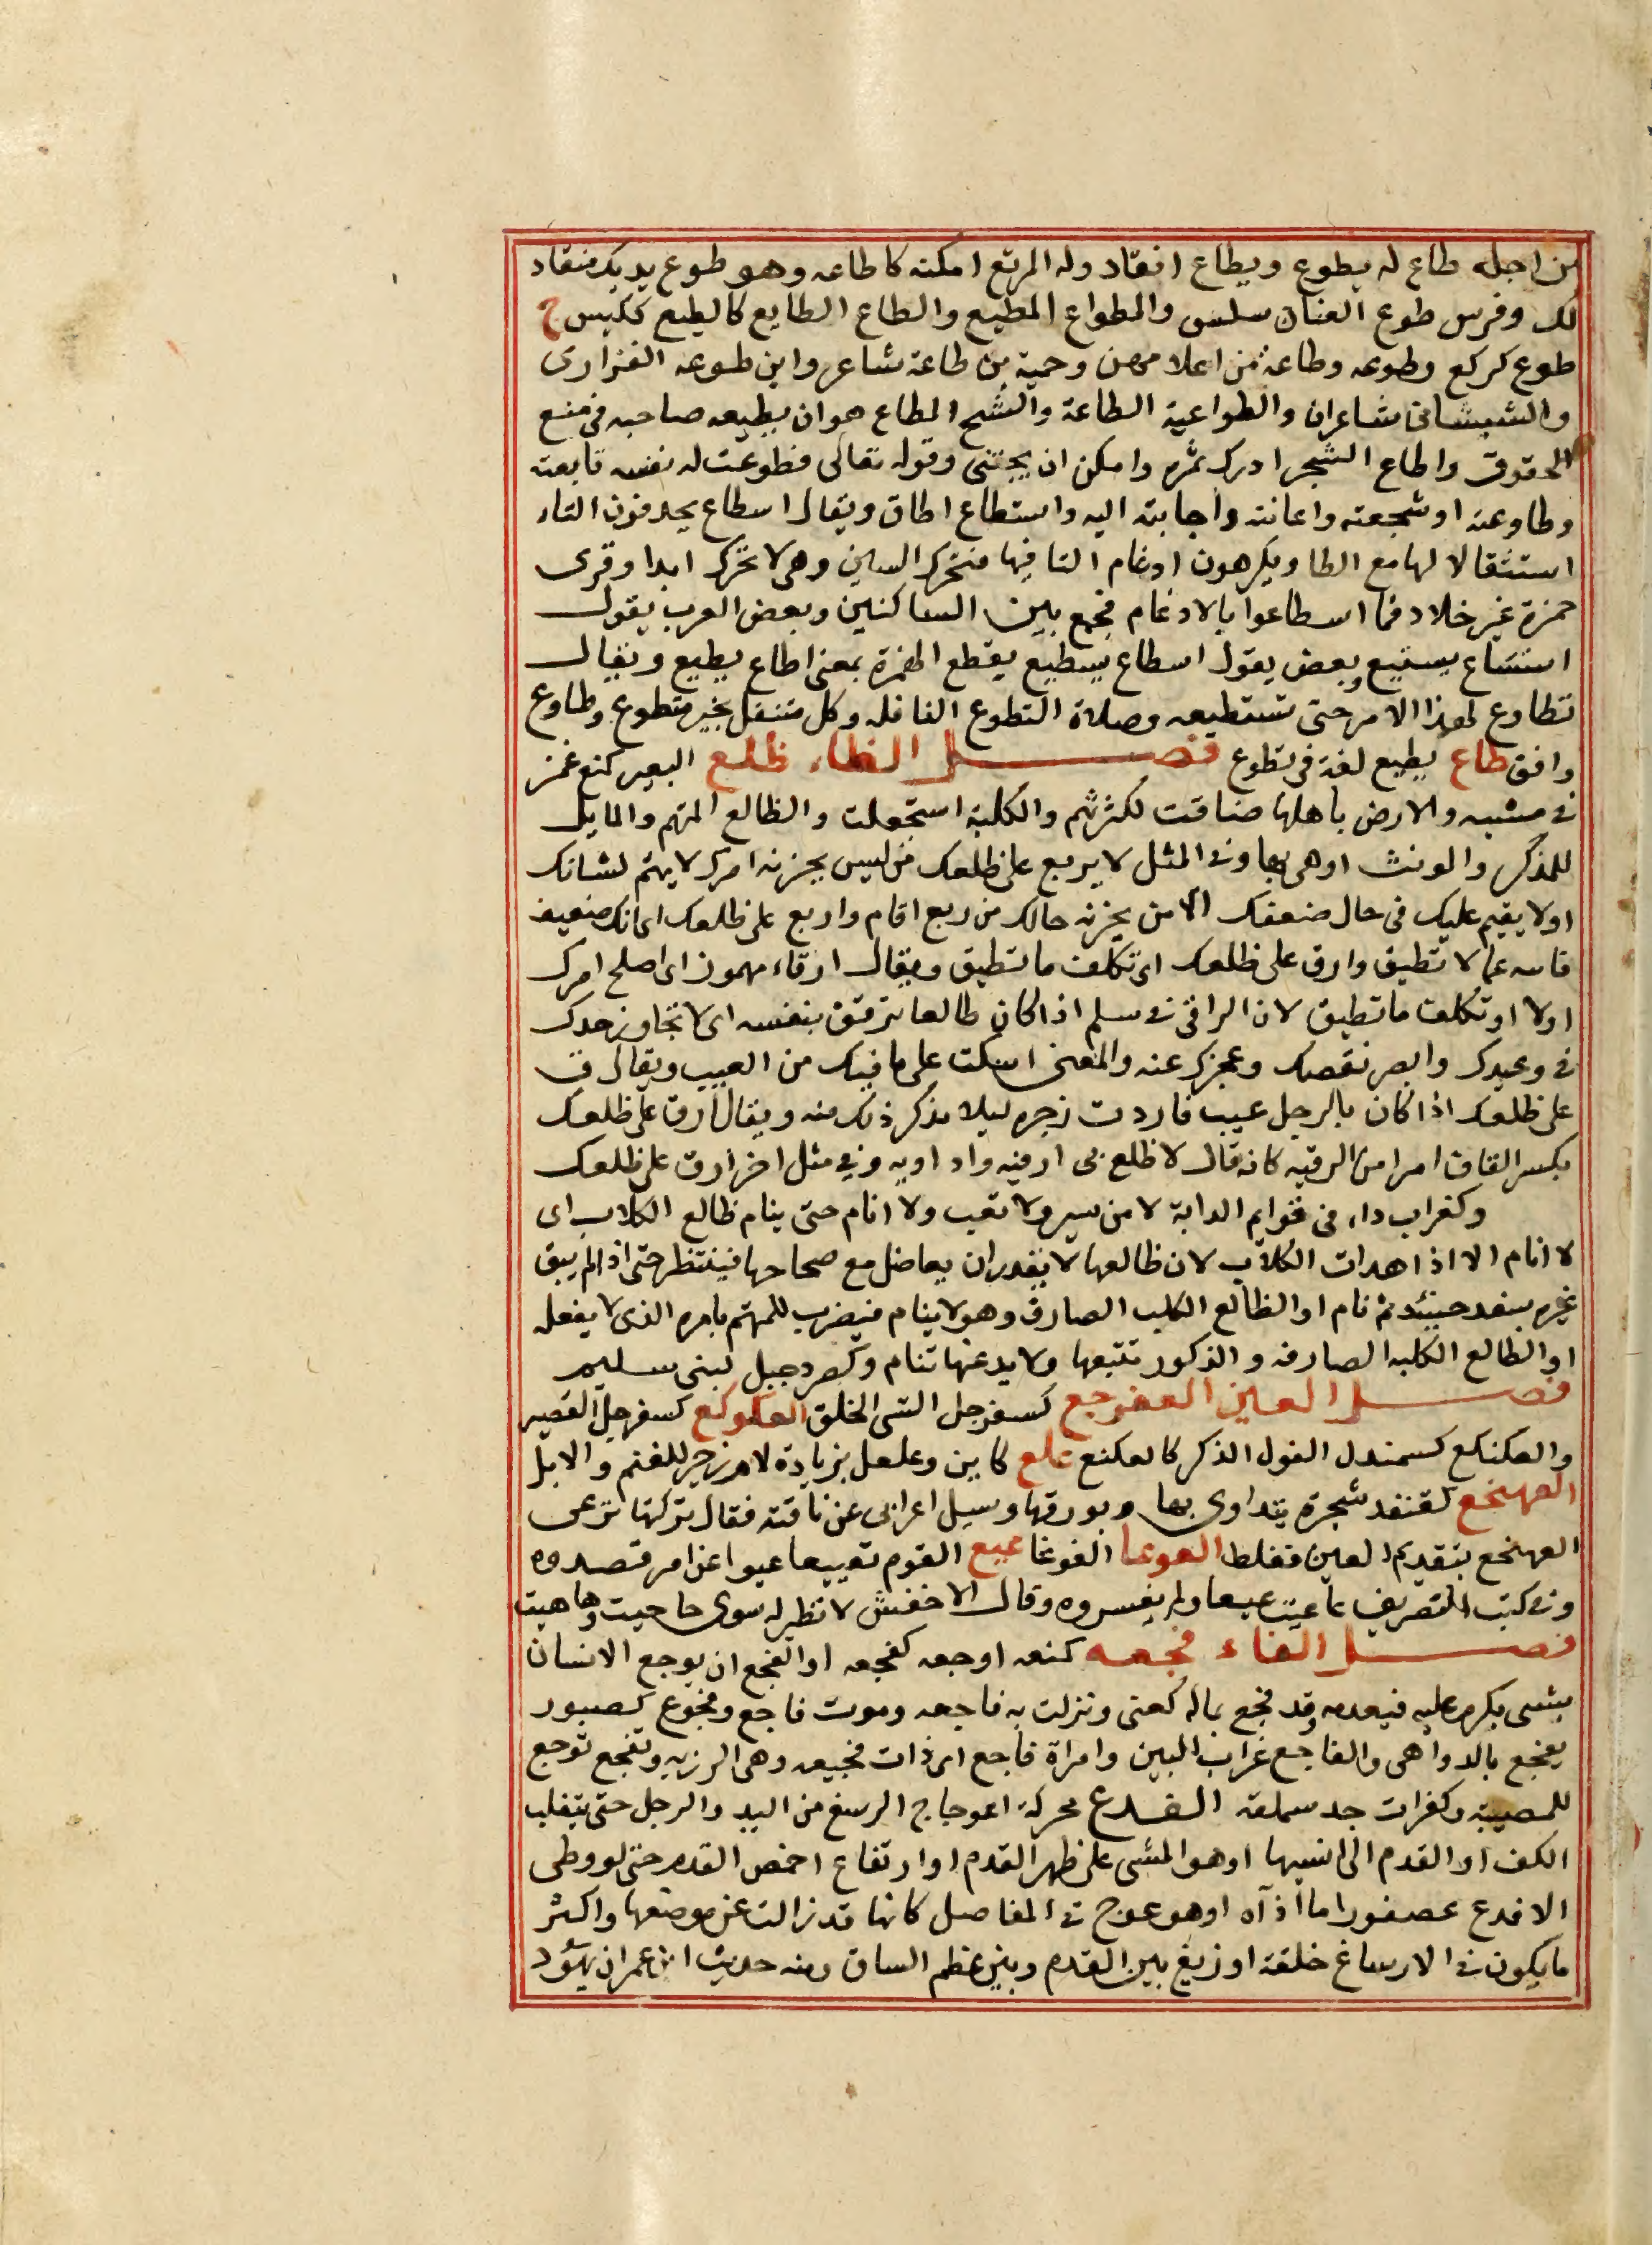 من اجله طاع له يطوع ويطاع انقاد وله المرتع امكنه كاطاعه وهو طوع يديك منقاد
لك وفرس طوع العنان سلس والمطواع المطيع والطاع الطايع كالطيع ككيس ج
طوع كركع وطوعه وطاعة من اعلامهن وحمية بن طاعة شاعر وابن طوعه الفزارى
والشيبشانى شاعران والطواعية الطاعة والشح المطاع هو ان يطيعه صاحبه فى منع
الحقوق واطاع الشجر ادرك ثمره وامكن ان يجتنى وقوله تعالى فطوعت له نفسه تابعته
وطاوعته او شجعته واعانته واجابته اليه واستطاع اطاق ويقال اسطاع يحذفون التاء
استثقالا لها مع الطا ويكرهون ادغام التا فيها فتحرك السين وهى لا تحرك ابدا وقرى
حمزة غير خلاد فما اسطاعوا بالادغام فجمع بين الساكنين وبعض العرب يقول
استاع يستيع وبعض يقول اسطاع يسطيع بقطع الهمزة بمعنى اطاع يطيع ويقال
تطاوع لهذا الامر حتى تستطيعه وصلاة التطوع النافله وكل متنفل بخير متطوع وطاوع
وافق طاع يطيع لغة فى يطوع فصل الظاء ظلع البعير كمنع غمز
فى مشيه والارض باهلها ضاقت لكثرتهم والكلبة استجعلت والظالع المتهم والمايل
للمذكر والمونث او هى بها وفى المثل لا يربع على ظلعك من ليس يحزنه امرك لا يهتم لشانك
اولا يقيم عليك فى حال ضعفك الا من يحزنه حالك من ربع اقام واربع على ظلعك اى انك ضعيف
فانته عما لا تطيق وارق على ظلعك اى تكلف ما تطيق ويقال ارقاء مهموز اى اصلح امرك
اولا او تكلف ما تطيق لان الراقى فى سلم اذا كان ظالعا ترفق بنفسه اى لا تجاوز حدك
فى وعيدك وابصر نقصك وعجزك عنه والمعنى اسكت على ما فيك من العيب ويقال ق
على ظلعك اذا كان بالرجل عيب فاردت زجره ليلا يذكر ذلك منه ويقال ارق على ظلعك
بكسر القاف امرا من الرقيه كانه قال لا ظلع بى ارقيه واداويه وفى مثل اخر ارق على ظلعك
وكغراب داء فى قوايم الدابة لا من سير ولا تعب ولا انام حتى ينام ظالع الكلاب اى
لا انام الا اذا هدات الكلاب لان ظالعها لا يقدر ان يعاضل مع صحاحها فينتظر حتى اذا لم يبق
غيره سفد حينئذ ثم نام او الظالع الكلب الصارف وهو لا ينام فيضرب للمهتم بامره الذى لا يغفله
او الظالع الكلبه الصارفه والذكور تتبعها ولا يدعنها تنام وكصرد جبل لبنى سليم
فصل العين العفرجع كسفرجل السى الخلق العكوكع كسفرجل القصير
والعكنكع كسمندل الغول الذكر كالعكنع علع كاين وعلعل بزيادة لام زجر للغنم والابل
العهنخع كقنفد شجرة يتداوى بها وبورقها وسيل اعرابى عن ناقته فقال تركتها ترعى
العهنخع بتقديم العين فغلط العوعا الغوغا عيع القوم تعييعا عيوا عن امر قصدوه
وفى كتب التصريف عاعيت عيعا ولم يفسروه وقال الاخفش لا نظير له سوى حاحيت وهاهيت
فصل الفاء فجعه كمنعه اوجعه كفجعه او الفجع ان يوجع الانسان
بشى يكرم عليه فيعدمه وقد فجع بماله كعنى ونزلت به فاجعه وموت فاجع وفجوع كصبور
يفجع بالدواهى والفاجع غراب البين وامراة فاجع اى ذات فجيعه وهى الرزيه وتفجع توجع
للمصيبة وكغراب جد سملقه الفدع محركة اعوجاج الرسغ من اليد والرجل حتى ينقلب
الكف او القدم الى انسيها او هو المشى على ظهر القدم او ارتفاع اخمص القدم حتى لو وطى
الافدع عصفورا ما اذآه او هو عوج فى المفاصل كانها قد زالت عن موضعها واكثر
ما يكون فى الارساغ خلقة او زيغ بين القدم وبين عظم الساق ومنه حديث ابن عمر ان يهود